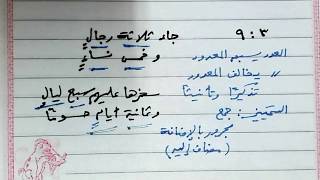 ٩:٣
العدد يسبق المعدود
〃 يخالف المعدود
تذكيرًا وتأنيثًا
التمييز: جمع
مجرور بالإضافة
(مضاف إليه)
جاء ثلاثة رجالٍ
و خمس نساءٍ
سخرها عليهم سبع ليالٍ
وثمانية أيامٍ حسومًا